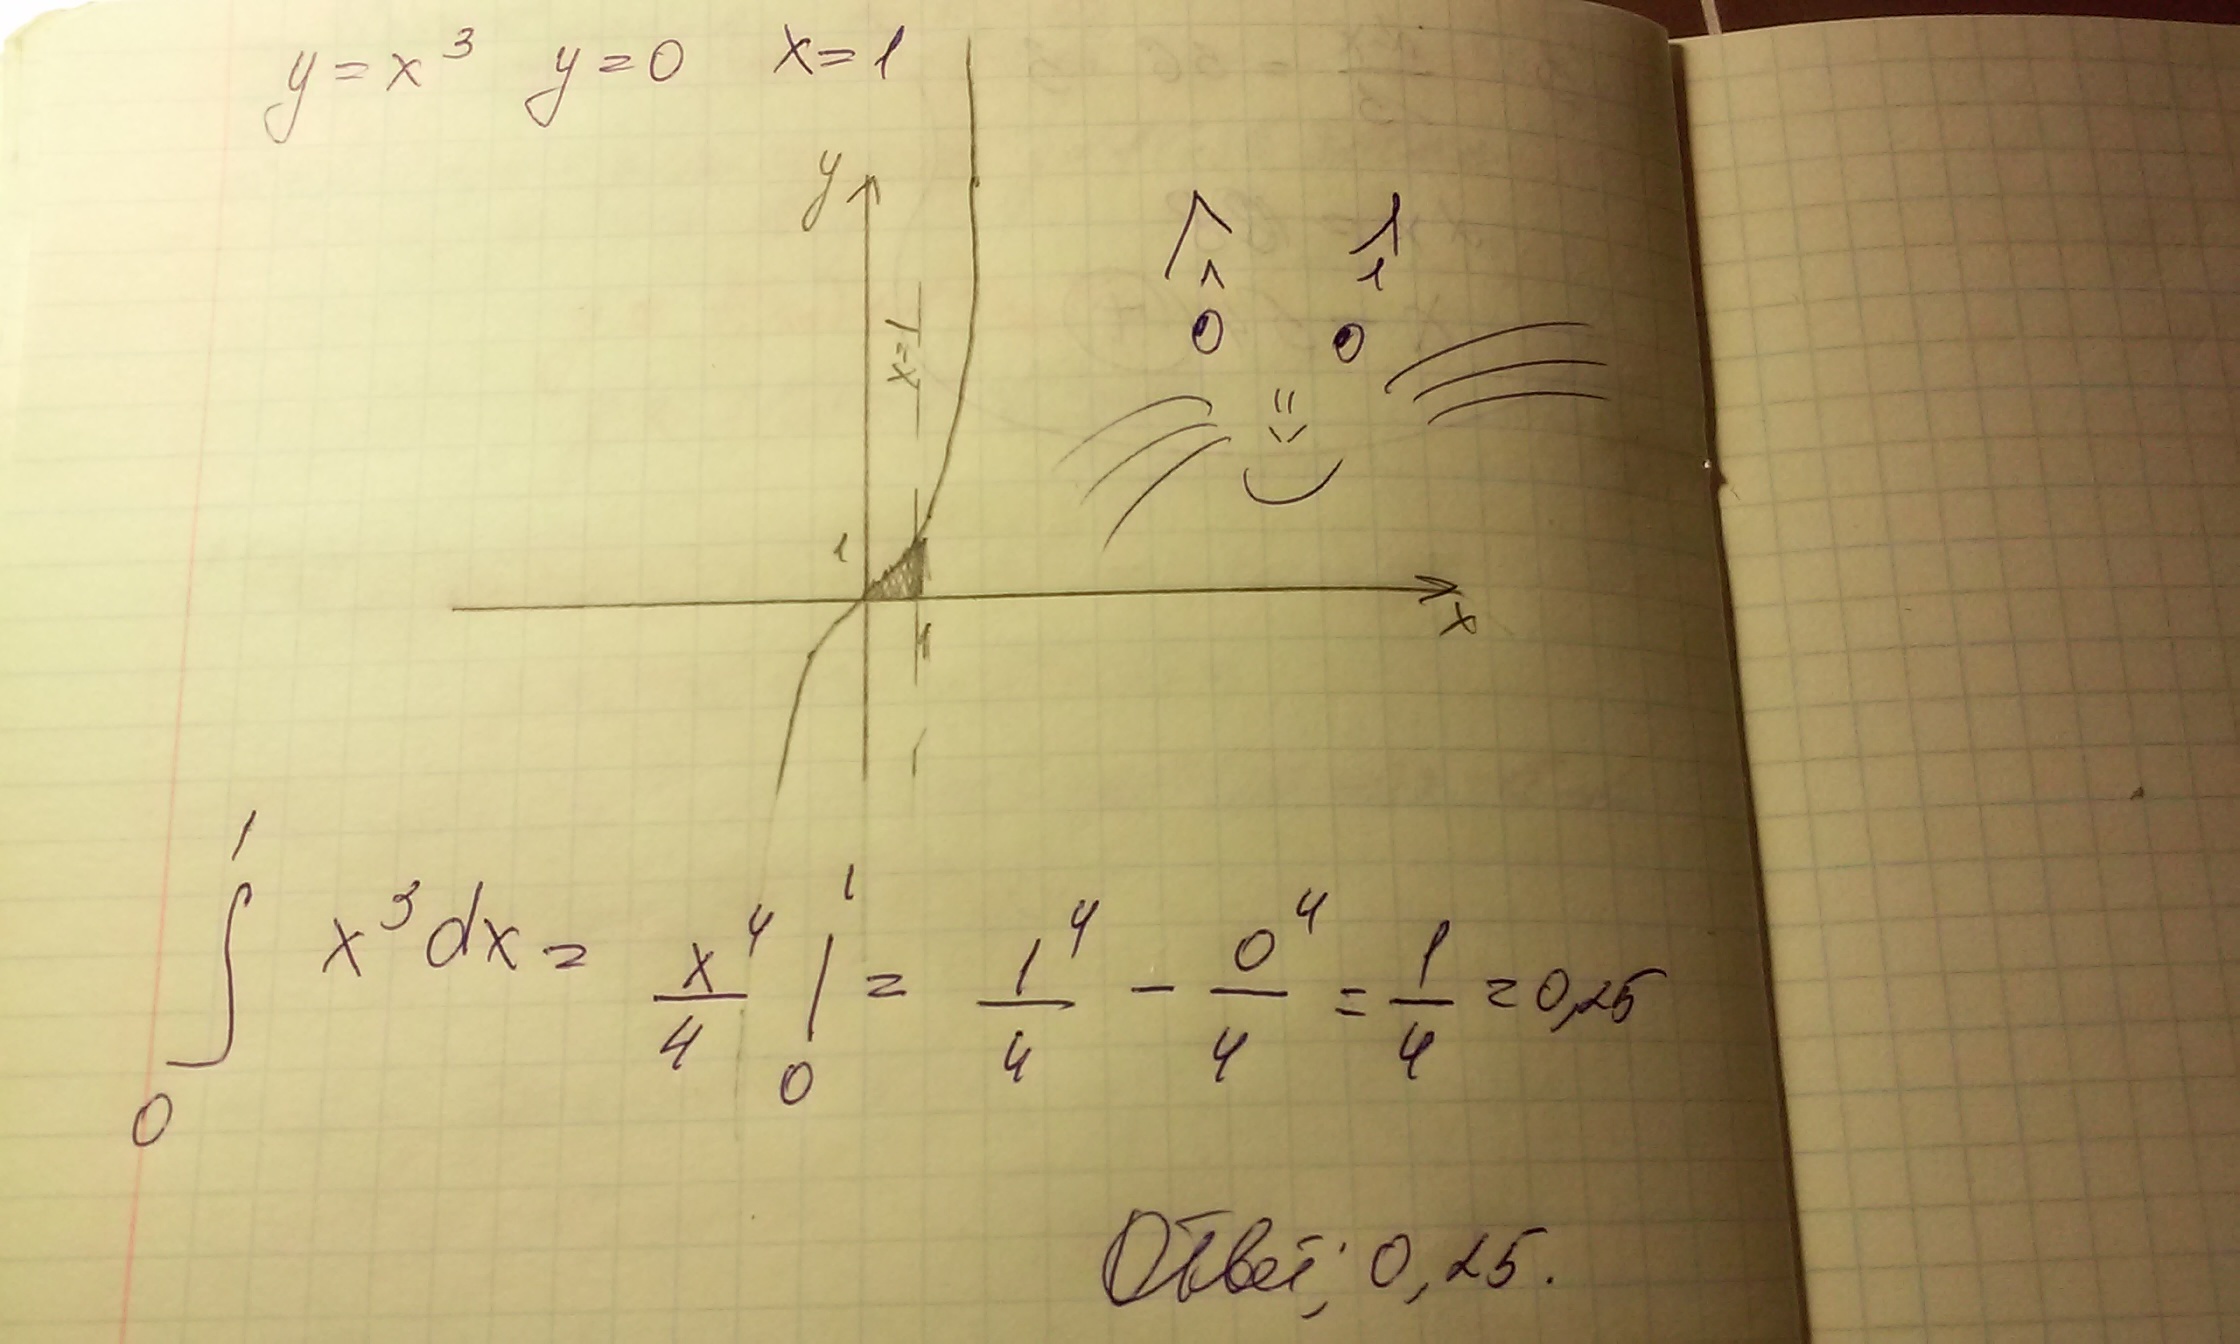 y = x³ y = 0 x = 1
y
x=1
1
x
1
∫₀¹ x³dx = x⁴/4 |₀¹ = 1⁴/4 - 0⁴/4 = 1/4 = 0,25
Ответ: 0,25.